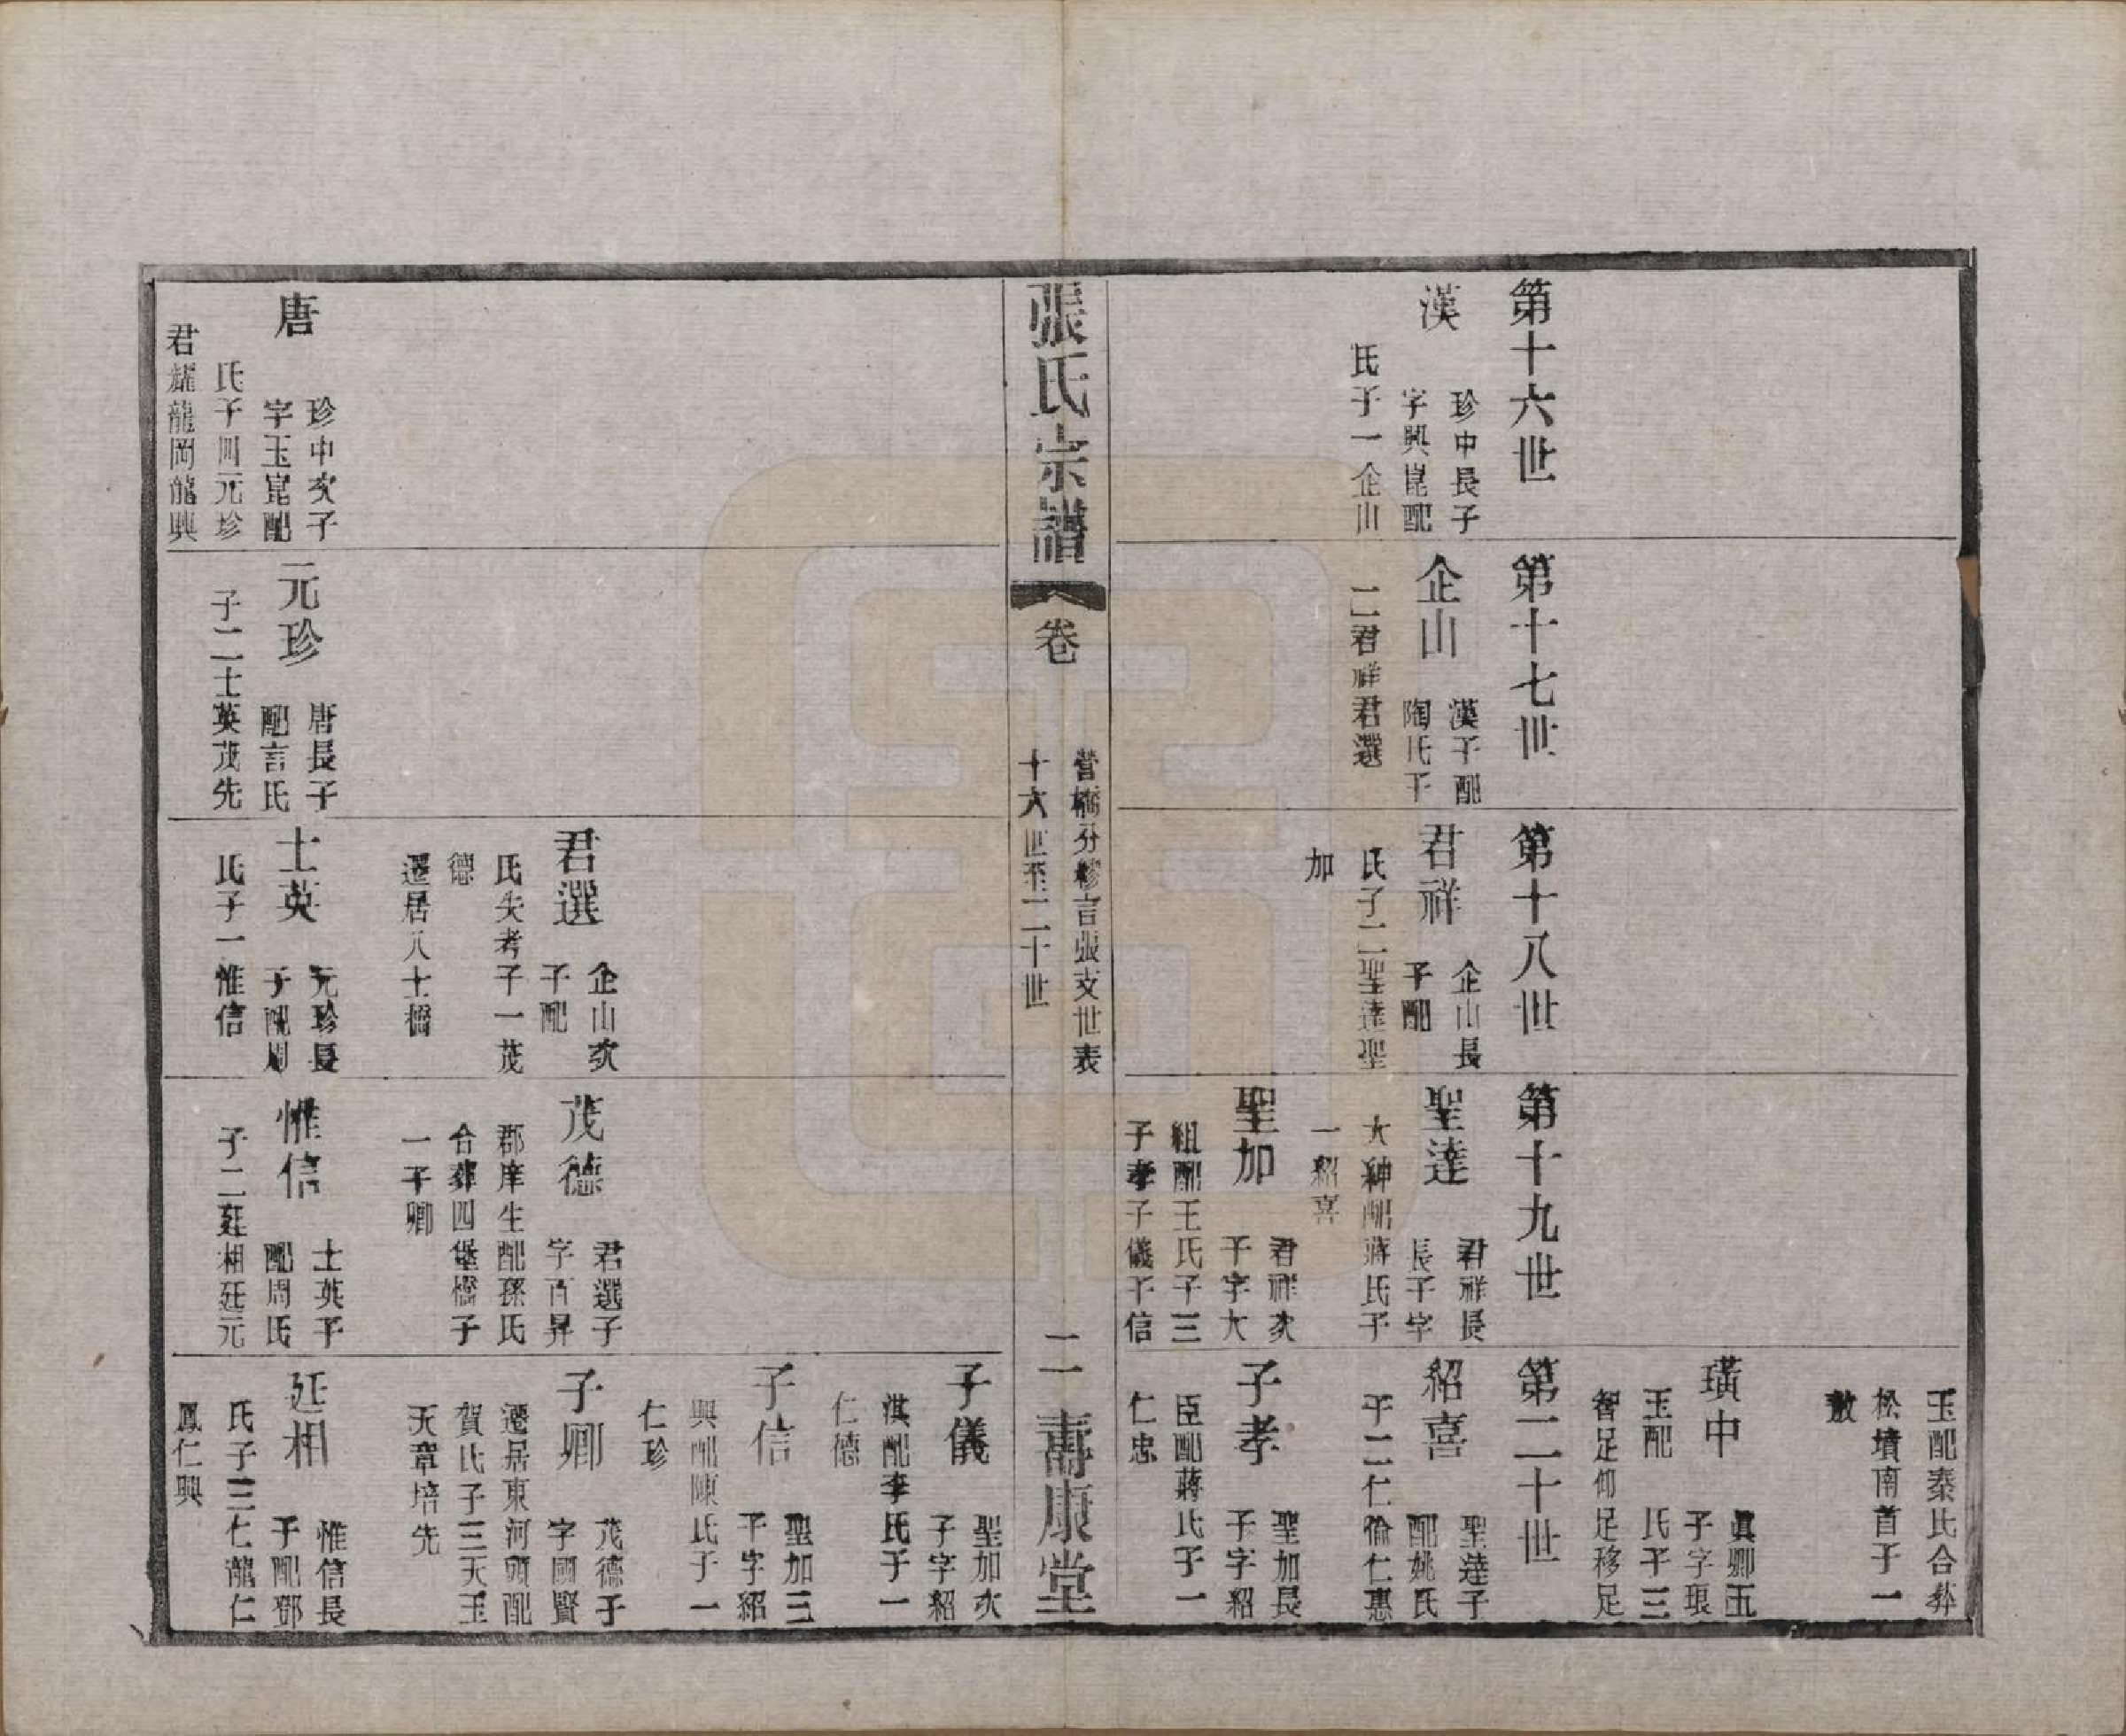 玉配秦氏合葬
松墳南首子一
敷
璜中
眞卿五
子字琅
玉配　氏子三
智足仰足移足
第十六世
第十七世
第十八世
第十九世
第二十世
漢
珍中長子
字興崑配
氏子一企山
企山
漢子配
陶氏子
二君祥君選
君祥
企山長
子配
氏子二聖達聖
加
聖達
君祥長
長子字
大紳配蔣氏子
一紹喜
紹喜
聖達子
配姚氏
子二仁倫仁惠
聖加
君祥次
子字大
組配王氏子三
子孝子儀子信
子孝
聖加長
子字紹
臣配蔣氏子一
仁忠
張氏宗譜
卷
營橋分繆言張支世表
十六世至二十世
二
壽康堂
子儀
聖加次
子字紹
淇配李氏子一
仁德
子信
聖加三
子字紹
興配陳氏子一
仁珍
君選
企山次
子配
氏失考子一茂
德
遷居八士橋
茂德
君選子
字百昇
郡庠生配孫氏
合葬四堡橋子
一子卿
子卿
茂德子
字國賢
遷居東河頭配
賀氏子三天玉
天章培先
唐
珍中次子
字玉崑配
氏子四元珍
君耀龍岡龍興
元珍
唐長子
配言氏
子二士英茂先
士英
元珍長
子配周
氏子一惟信
惟信
士英子
配周氏
子二廷相廷元
廷相
惟信長
子配鄧
氏子三仁龍仁
鳳仁興